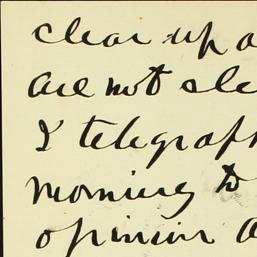 clear up a
are not cle
I telegraph
morning to
opinion a